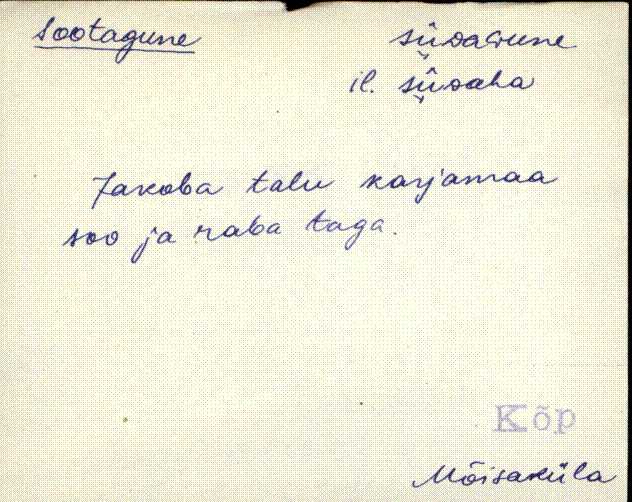 Sootagune sūᴅaGune
il. sūᴅaha
Jakoba talu karjamaa
soo ja raba taga.
Kõp
Mõisaküla